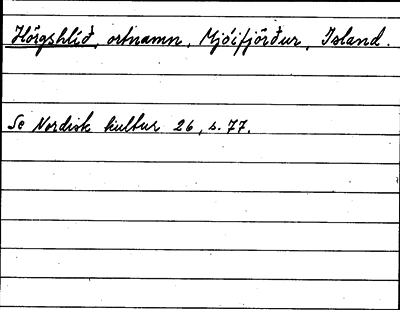 Hörgshlíð, ortnamn, Mjóifjörður, Island.
Se Nordisk kultur 26, s. 77.